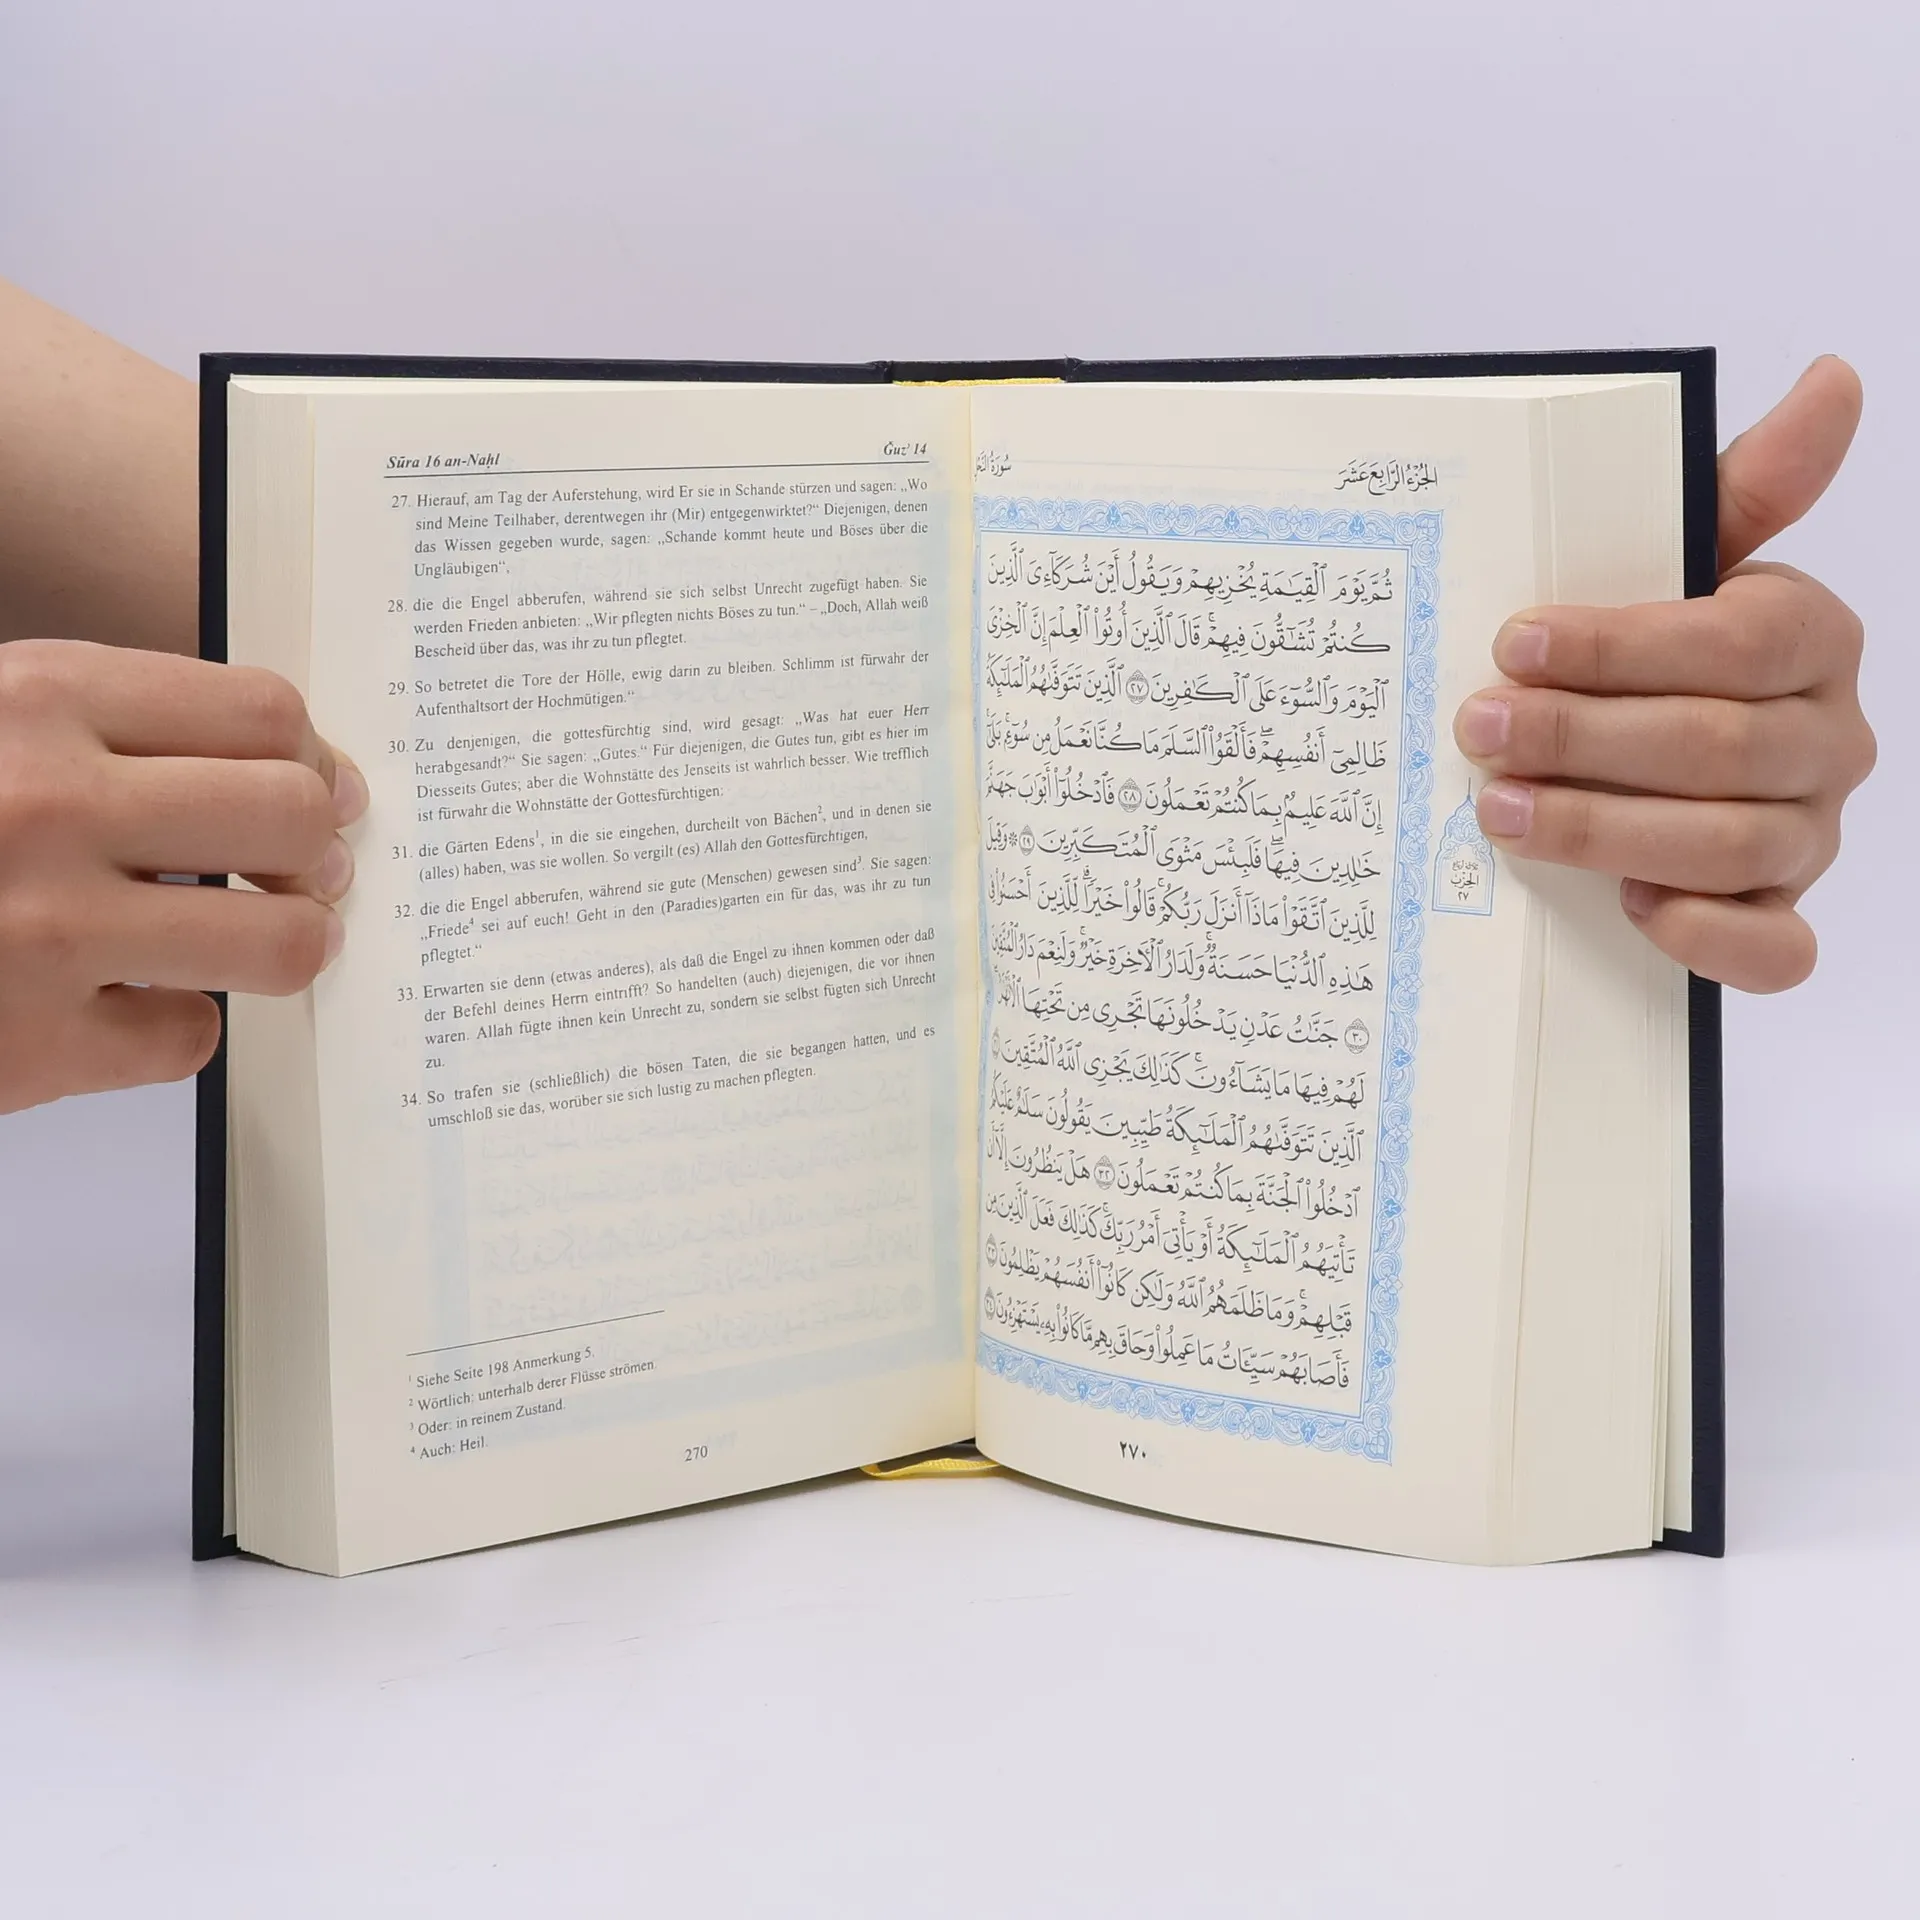 Sūra 16 an-Naḥl
Ǧuzʾ 14
27. Hierauf, am Tag der Auferstehung, wird Er sie in Schande stürzen und sagen: „Wo
sind Meine Teilhaber, derentwegen ihr (Mir) entgegenwirktet?“ Diejenigen, denen
das Wissen gegeben wurde, sagen: „Schande kommt heute und Böses über die
Ungläubigen“,
28. die die Engel abberufen, während sie sich selbst Unrecht zugefügt haben. Sie
werden Frieden anbieten: „Wir pflegten nichts Böses zu tun.“ – „Doch, Allah weiß
Bescheid über das, was ihr zu tun pflegtet.
29. So betretet die Tore der Hölle, ewig darin zu bleiben. Schlimm ist fürwahr der
Aufenthaltsort der Hochmütigen.“
30. Zu denjenigen, die gottesfürchtig sind, wird gesagt: „Was hat euer Herr
herabgesandt?“ Sie sagen: „Gutes.“ Für diejenigen, die Gutes tun, gibt es hier im
Diesseits Gutes; aber die Wohnstätte des Jenseits ist wahrlich besser. Wie trefflich
ist fürwahr die Wohnstätte der Gottesfürchtigen:
31. die Gärten Edens¹, in die sie eingehen, durcheilt von Bächen², und in denen sie
(alles) haben, was sie wollen. So vergilt (es) Allah den Gottesfürchtigen,
32. die die Engel abberufen, während sie gute (Menschen) gewesen sind³. Sie sagen:
„Friede⁴ sei auf euch! Geht in den (Paradies)garten ein für das, was ihr zu tun
pflegtet.“
33. Erwarten sie denn (etwas anderes), als daß die Engel zu ihnen kommen oder daß
der Befehl deines Herrn eintrifft? So handelten (auch) diejenigen, die vor ihnen
waren. Allah fügte ihnen kein Unrecht zu, sondern sie selbst fügten sich Unrecht
zu.
34. So trafen sie (schließlich) die bösen Taten, die sie begangen hatten, und es
umschloß sie das, worüber sie sich lustig zu machen pflegten.
¹ Siehe Seite 198 Anmerkung 5.
² Wörtlich: unterhalb derer Flüsse strömen.
³ Oder: in reinem Zustand.
⁴ Auch: Heil.
270
الجُزْءُ الرَّابِعَ عَشَرَ
سُورَةُ النَّحْلِ
ثُمَّ يَوْمَ ٱلْقِيَٰمَةِ يُخْزِيهِمْ وَيَقُولُ أَيْنَ شُرَكَآءِىَ ٱلَّذِينَ
كُنتُمْ تُشَٰٓقُّونَ فِيهِمْ ۚ قَالَ ٱلَّذِينَ أُوتُوا۟ ٱلْعِلْمَ إِنَّ ٱلْخِزْىَ
ٱلْيَوْمَ وَٱلسُّوٓءَ عَلَى ٱلْكَٰفِرِينَ ٢٧ ٱلَّذِينَ تَتَوَفَّىٰهُمُ ٱلْمَلَٰٓئِكَةُ
ظَالِمِىٓ أَنفُسِهِمْ ۖ فَأَلْقَوُا۟ ٱلسَّلَمَ مَا كُنَّا نَعْمَلُ مِن سُوٓءٍۭ ۚ بَلَىٰٓ
إِنَّ ٱللَّهَ عَلِيمٌۢ بِمَا كُنتُمْ تَعْمَلُونَ ٢٨ فَٱدْخُلُوٓا۟ أَبْوَٰبَ جَهَنَّمَ
خَٰلِدِينَ فِيهَا ۖ فَلَبِئْسَ مَثْوَى ٱلْمُتَكَبِّرِينَ ٢٩ ۞ وَقِيلَ
لِلَّذِينَ ٱتَّقَوْا۟ مَاذَآ أَنزَلَ رَبُّكُمْ ۚ قَالُوا۟ خَيْرًا ۗ لِّلَّذِينَ أَحْسَنُوا۟ فِى
هَٰذِهِ ٱلدُّنْيَا حَسَنَةٌ ۚ وَلَدَارُ ٱلْءَاخِرَةِ خَيْرٌ ۚ وَلَنِعْمَ دَارُ ٱلْمُتَّقِينَ
٣٠ جَنَّٰتُ عَدْنٍ يَدْخُلُونَهَا تَجْرِى مِن تَحْتِهَا ٱلْأَنْهَٰرُ ۖ
لَهُمْ فِيهَا مَا يَشَآءُونَ ۚ كَذَٰلِكَ يَجْزِى ٱللَّهُ ٱلْمُتَّقِينَ
ٱلَّذِينَ تَتَوَفَّىٰهُمُ ٱلْمَلَٰٓئِكَةُ طَيِّبِينَ ۙ يَقُولُونَ سَلَٰمٌ عَلَيْكُمُ
ٱدْخُلُوا۟ ٱلْجَنَّةَ بِمَا كُنتُمْ تَعْمَلُونَ ٣٢ هَلْ يَنظُرُونَ إِلَّآ أَن
تَأْتِيَهُمُ ٱلْمَلَٰٓئِكَةُ أَوْ يَأْتِىَ أَمْرُ رَبِّكَ ۚ كَذَٰلِكَ فَعَلَ ٱلَّذِينَ مِن
قَبْلِهِمْ ۚ وَمَا ظَلَمَهُمُ ٱللَّهُ وَلَٰكِن كَانُوٓا۟ أَنفُسَهُمْ يَظْلِمُونَ ٣٣
فَأَصَابَهُمْ سَيِّـَٔاتُ مَا عَمِلُوا۟ وَحَاقَ بِهِم مَّا كَانُوا۟ بِهِۦ يَسْتَهْزِءُونَ ٣٤
الحِزْب
٢٧
٢٧٠